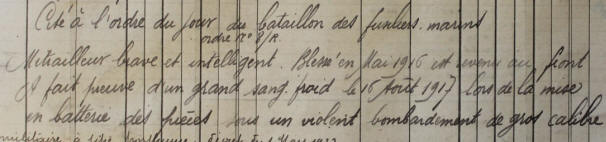 Cité à l'ordre du jour du bataillon des fusiliers marins
ordre n° 9/R
Mitrailleur brave et intelligent. Blessé en Mai 1916 est revenu au front
A fait preuve d'un grand sang froid le 16 Août 1917 lors de la mise
en batterie des pièces sous un violent bombardement de gros calibre
militaire à titre